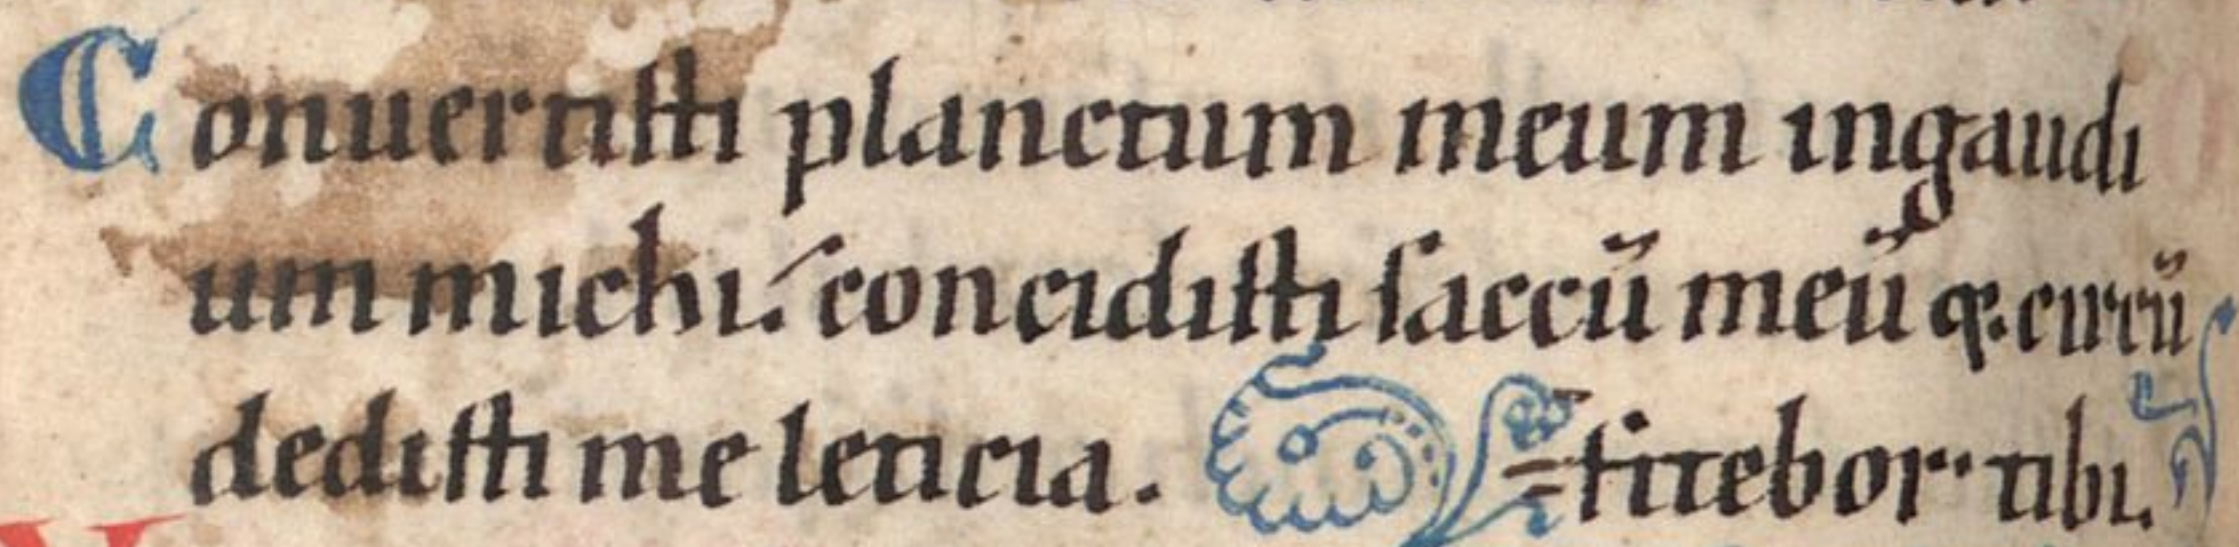 Conuertisti planctum meum ingaudi
um michi: concidisti saccū meū q; circū
dedisti me leticia. =fitebor tibi.